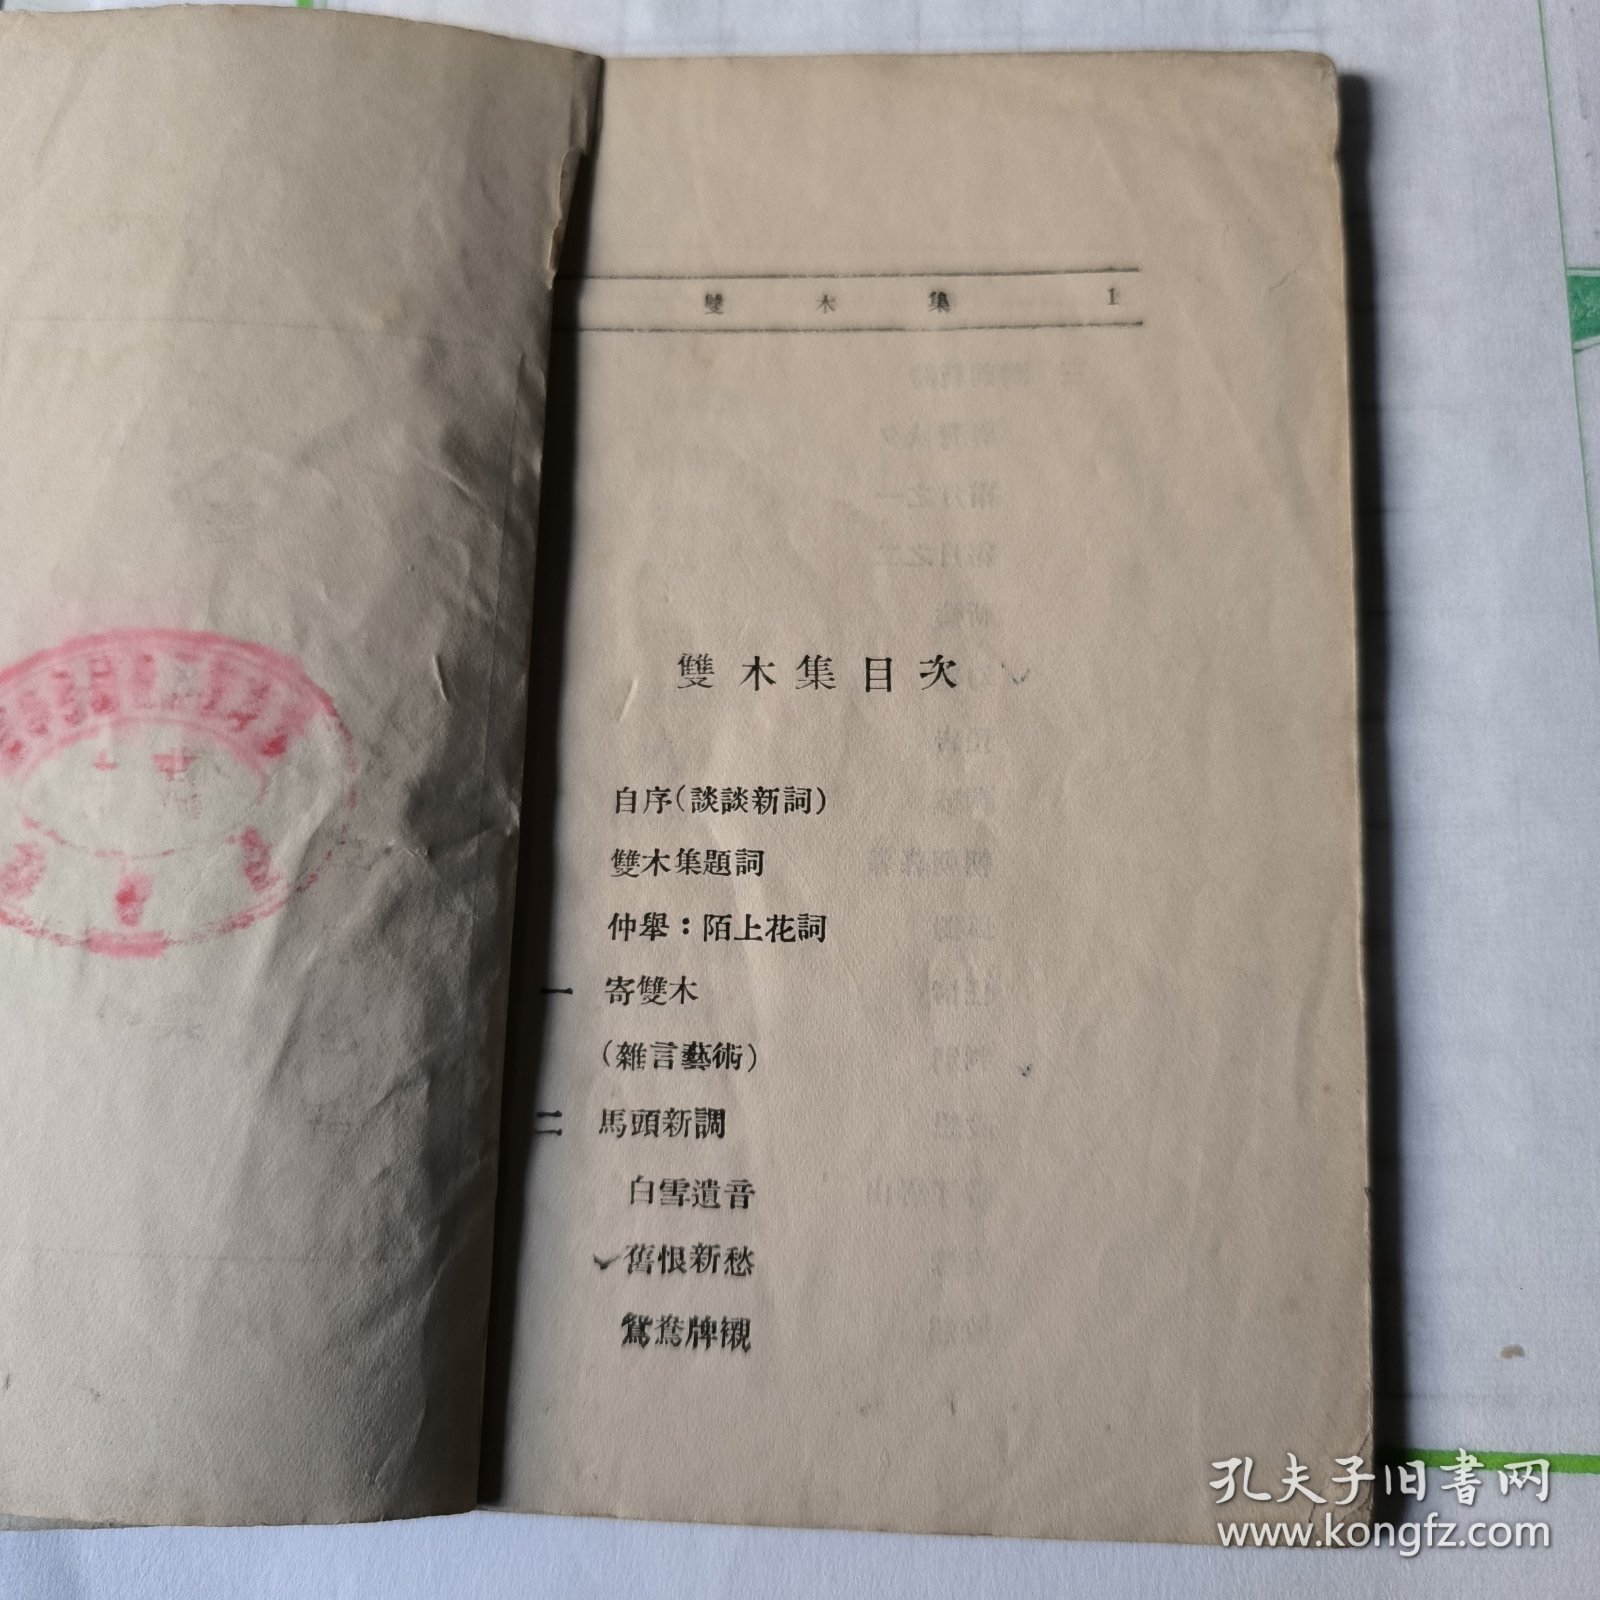 雙木集 1
雙木集目次
自序(談談新詞)
雙木集題詞
仲舉:陌上花詞
一 寄雙木
(雜言藝術)
二 馬頭新調
白雪遺音
舊恨新愁
鴛鴦牌襯
孔夫子旧书网
www.kongfz.com